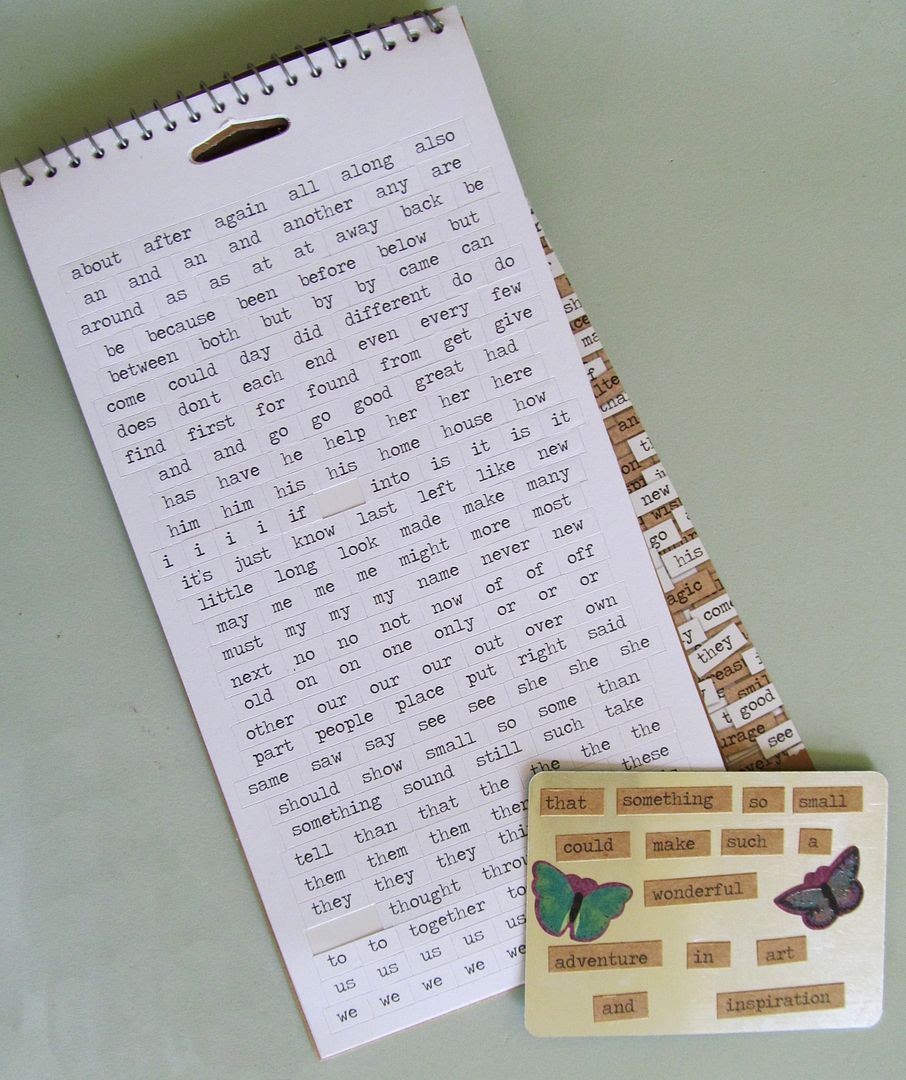 about after again all along also
an and an and another any are
around as as at at away back be
be because been before below but
between both but by by came can
come could day did different do do
does dont each end even every few
find first for found from get give
and and go go good great had
has have he help her her here
him him his his home house how
i i i i if into is it is it
it's just know last left like new
little long look made make many
may me me me might more most
must my my my name never new
next no no not now of of off
old on on one only or or or
other our our our out over own
part people place put right said
same saw say see see she she she
should show small so some than
something sound still such take
tell than that the the the the
them them them these
they they they
thought
to to together to
us us us us us
we we we we we
new
go
his
they
good
see
that something so small
could make such a
wonderful
adventure in art
and inspiration